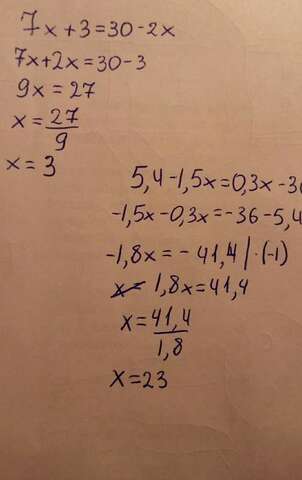 7x+3=30-2x
7x+2x=30-3
9x=27
x=27/9
x=3
5,4-1,5x=0,3x-36
-1,5x-0,3x=-36-5,4
-1,8x=-41,4|·(-1)
1,8x=41,4
x=41,4/1,8
x=23